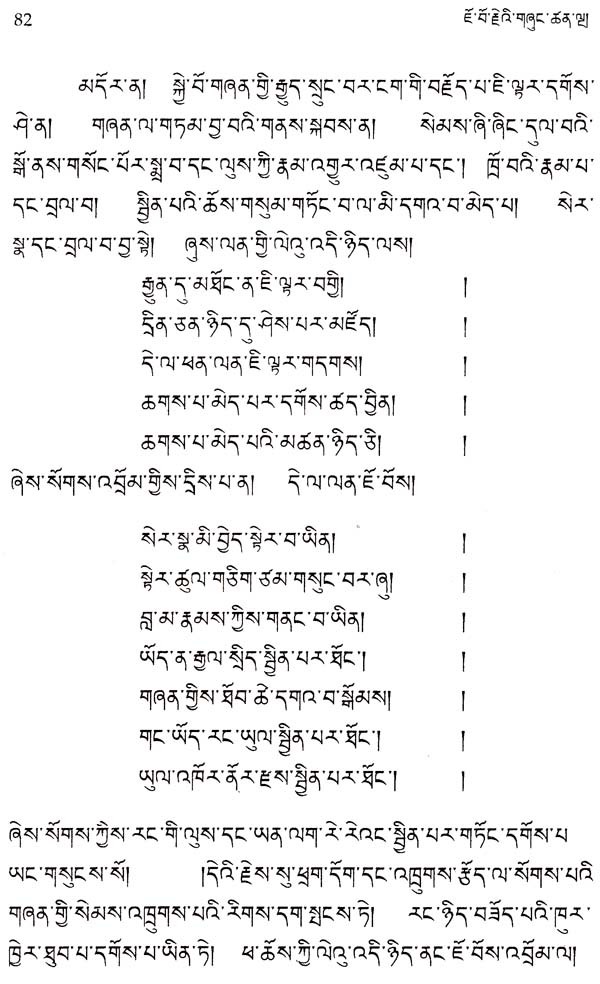 82 ཇོ་བོ་རྗེའི་གཞུང་ཚན་ལྔ།
མདོར་ན། སྐྱེ་བོ་གཞན་གྱི་རྒྱུད་སྲུང་བར་ངག་གི་བརྗོད་པ་ཇི་ལྟར་དགོས་
ཤེ་ན། གཞན་ལ་གཏམ་བྱ་བའི་གནས་སྐབས་ན། སེམས་ཞི་ཞིང་དུལ་བའི་
སྒོ་ནས་གསོང་པོར་སྨྲ་བ་དང་ལུས་ཀྱི་རྣམ་འགྱུར་འཛུམ་པ་དང་། ཁྲོ་བའི་རྣམ་པ་
དང་བྲལ་བ། སྦྱིན་པའི་ཆོས་གསུམ་གཏོང་བ་ལ་མི་དགའ་བ་མེད་པ། སེར་
སྣ་དང་བྲལ་བ་བྱ་སྟེ། ཞུས་ལན་གྱི་ལེའུ་འདི་ཉིད་ལས།
རྒྱུན་དུ་མཐོང་ན་ཇི་ལྟར་བགྱི། །
དྲིན་ཅན་ཉིད་དུ་ཤེས་པར་མཛོད། །
དེ་ལ་ཕན་ལན་ཇི་ལྟར་གདགས། །
ཆགས་པ་མེད་པར་དགོས་ཚད་བྱིན། །
ཆགས་པ་མེད་པའི་མཚན་ཉིད་ཅི། །
ཞེས་སོགས་འབྲོམ་གྱིས་དྲིས་པ་ན། དེ་ལ་ལན་ཇོ་བོས།
སེར་སྣ་མི་བྱེད་སྟེར་བ་ཡིན། །
སྟེར་ཚུལ་གཅིག་ཙམ་གསུང་བར་ཞུ། །
བླ་མ་རྣམས་ཀྱིས་གནང་བ་ཡིན། །
ཡོད་ན་རྒྱལ་སྲིད་སྦྱིན་པར་ཐོང་། །
གཞན་གྱིས་ཐོབ་ཚེ་དགའ་བ་སྒོམས། །
གང་ཡོད་རང་ཡུལ་སྦྱིན་པར་ཐོང་། །
ཡུལ་འཁོར་ནོར་རྫས་སྦྱིན་པར་ཐོང་། །
ཞེས་སོགས་ཀྱིས་རང་གི་ལུས་དང་ཡན་ལག་རེ་རེའང་སྦྱིན་པར་གཏོང་དགོས་པ
ཡང་གསུངས་སོ། །དེའི་རྗེས་སུ་ཕྲག་དོག་དང་འཁྲུགས་རྩོད་ལ་སོགས་པའི
གཞན་གྱི་སེམས་འཁྲུགས་པའི་རིགས་དག་སྤངས་ཏེ། རང་ཉིད་བཟོད་པའི་ཁུར་
ཁྱེར་ཐུབ་པ་དགོས་པ་ཡིན་ཏེ། ཕ་ཆོས་ཀྱི་ལེའུ་འདི་ཉིད་ནང་ཇོ་བོས་འབྲོམ་ལ།